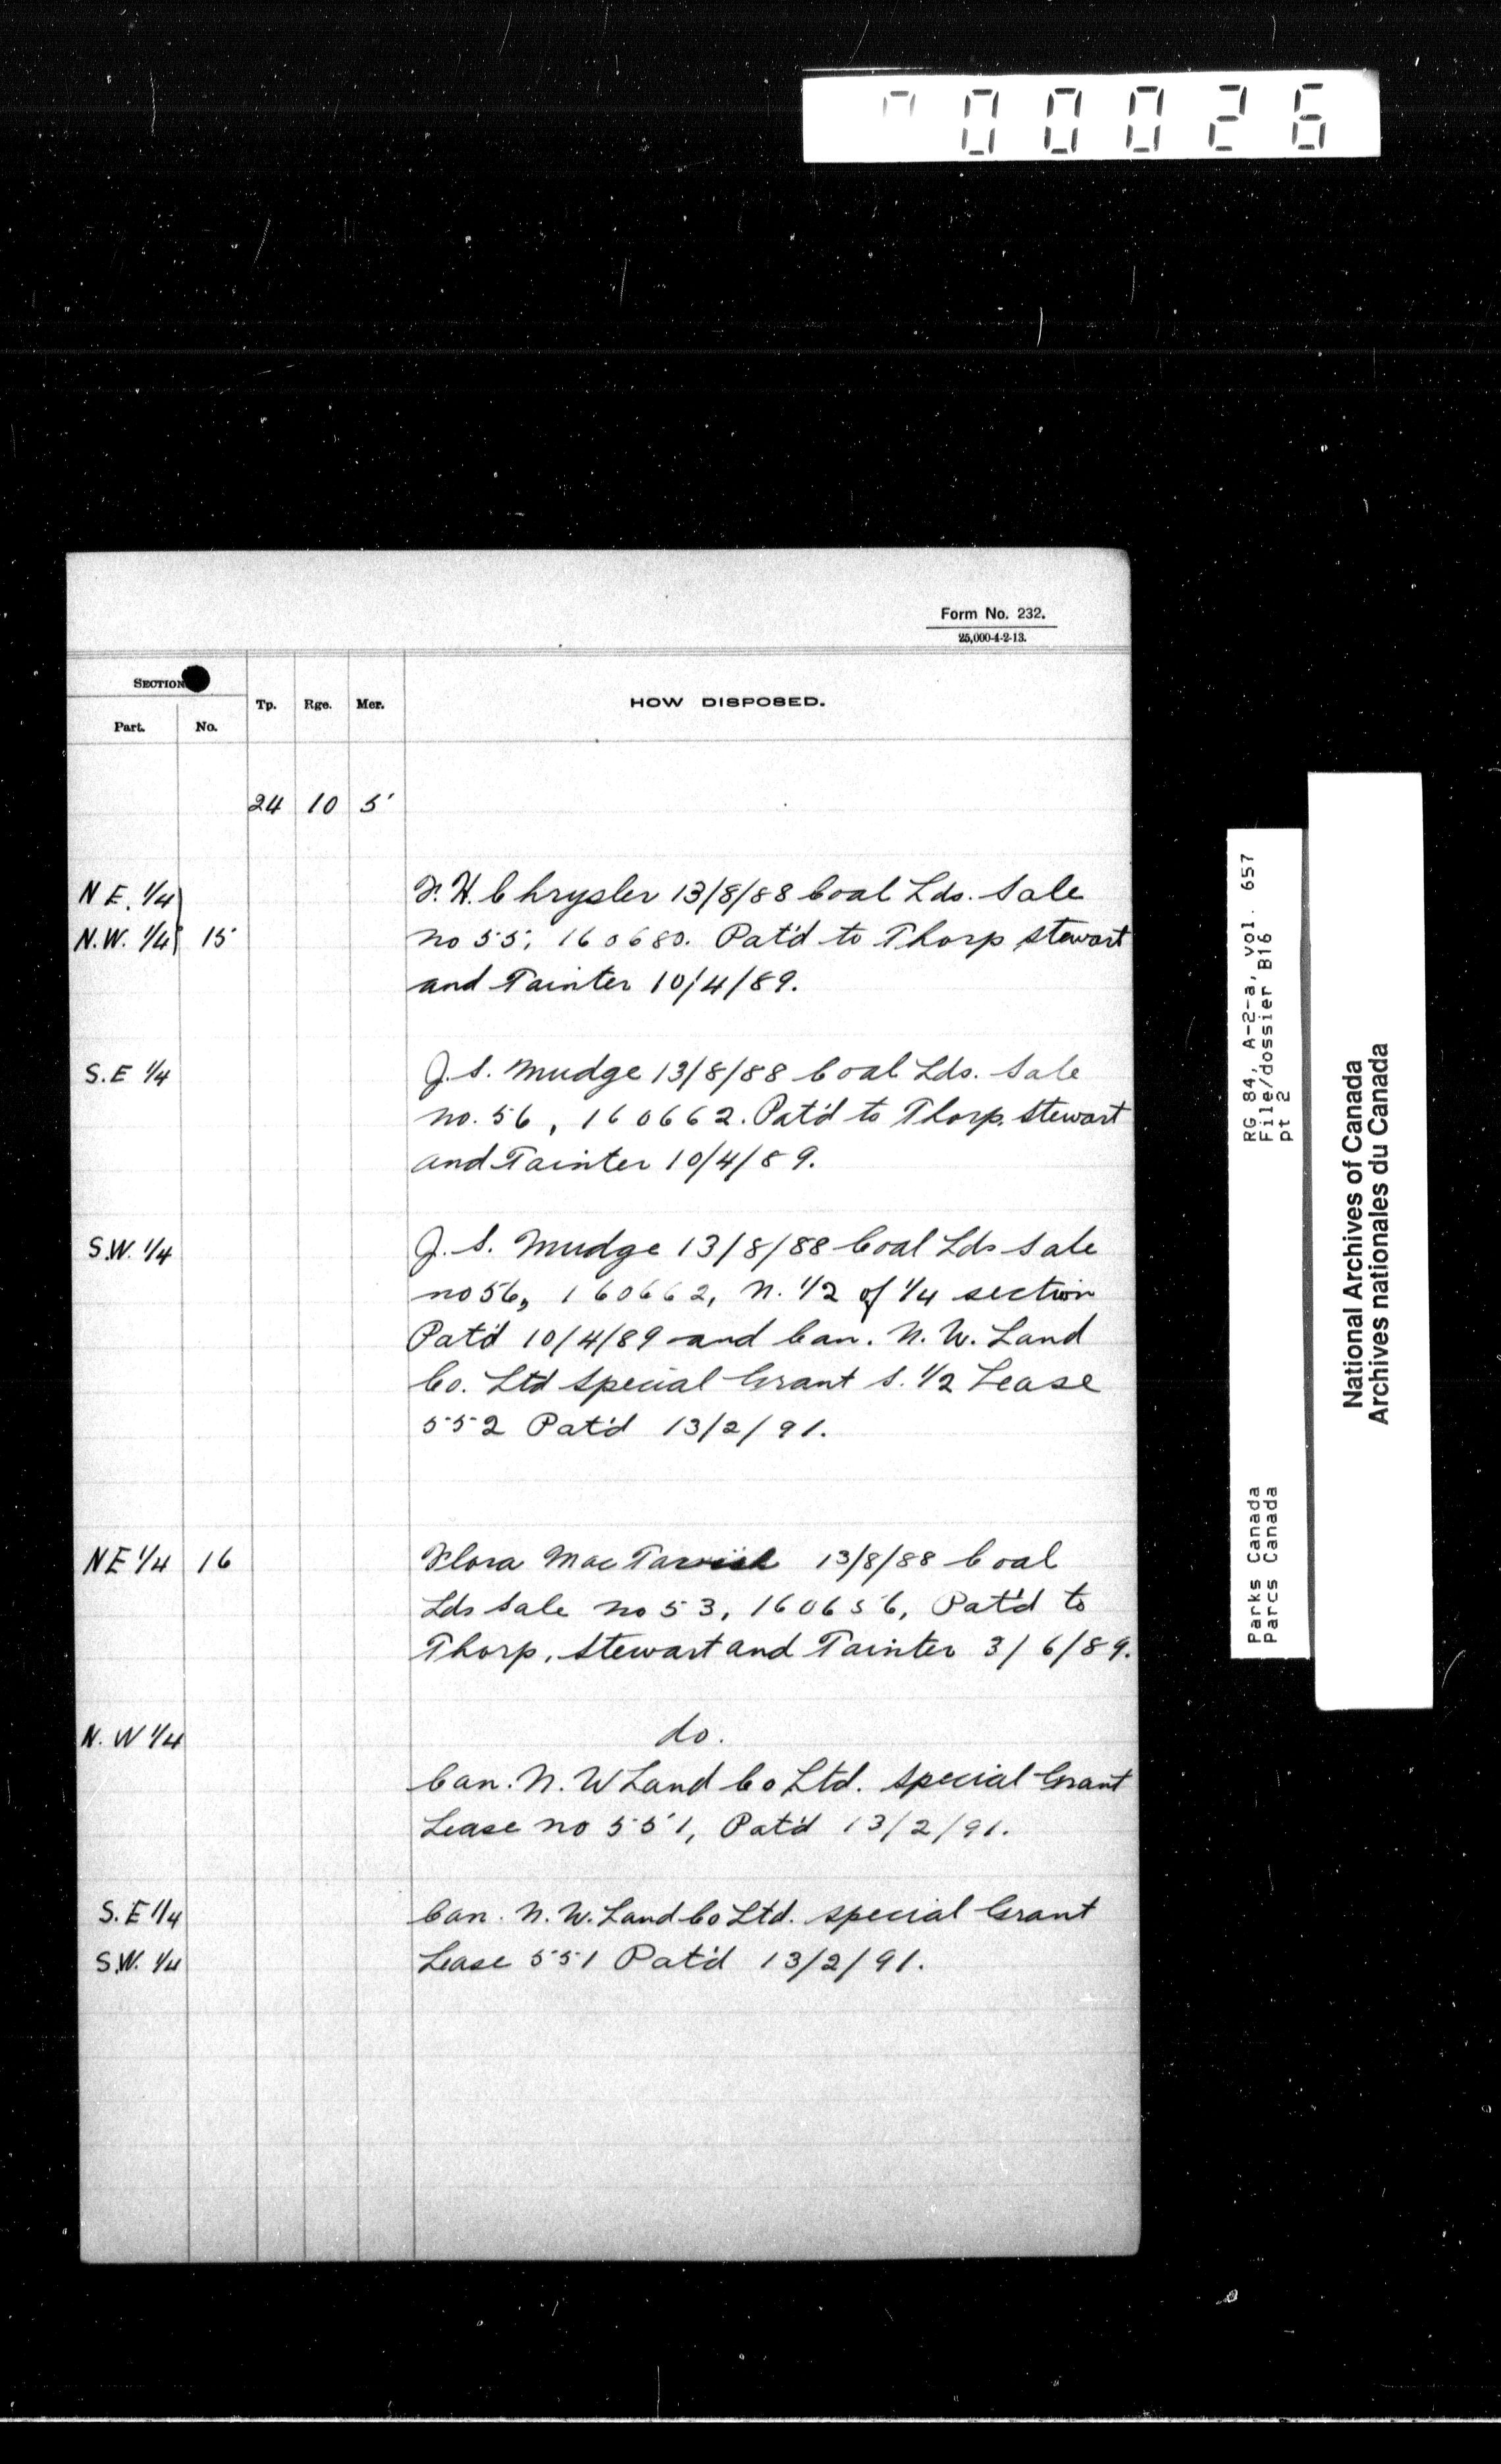 000026
Form No. 232.
25,000-4-2-13.
SECTION
Part. No. Tp. Rge. Mer. HOW DISPOSED.
24 10 5
N E. 1/4 F. H. Chrysler 13/8/88 Coal Lds. Sale
N.W. 1/4 15 no 55, 160680. Pat'd to Thorp Stewart
and Tainter 10/4/89.
S.E 1/4 J. S. Mudge 13/8/88 Coal Lds. Sale
no. 56, 160662. Pat'd to Thorp, Stewart
and Tainter 10/4/89.
S.W. 1/4 J. S. Mudge 13/8/88 Coal Lds Sale
no 56, 160662, N. 1/2 of 1/4 section
Pat'd 10/4/89 and Can. N. W. Land
Co. Ltd Special Grant S. 1/2 Lease
552 Pat'd 13/2/91.
NE 1/4 16 Flora Mac Tavish 13/8/88 Coal
Lds Sale no 53, 160656, Pat'd to
Thorp, Stewart and Tainter 3/6/89.
N. W 1/4 do.
Can. N. W Land Co Ltd. Special Grant
Lease no 551, Pat'd 13/2/91.
S. E 1/4 Can. N. W. Land Co Ltd. Special Grant
S.W. 1/4 Lease 551 Pat'd 13/2/91.
RG 84, A-2-a, vol. 657
File/dossier B16
pt 2
Parks Canada
Parcs Canada
National Archives of Canada
Archives nationales du Canada